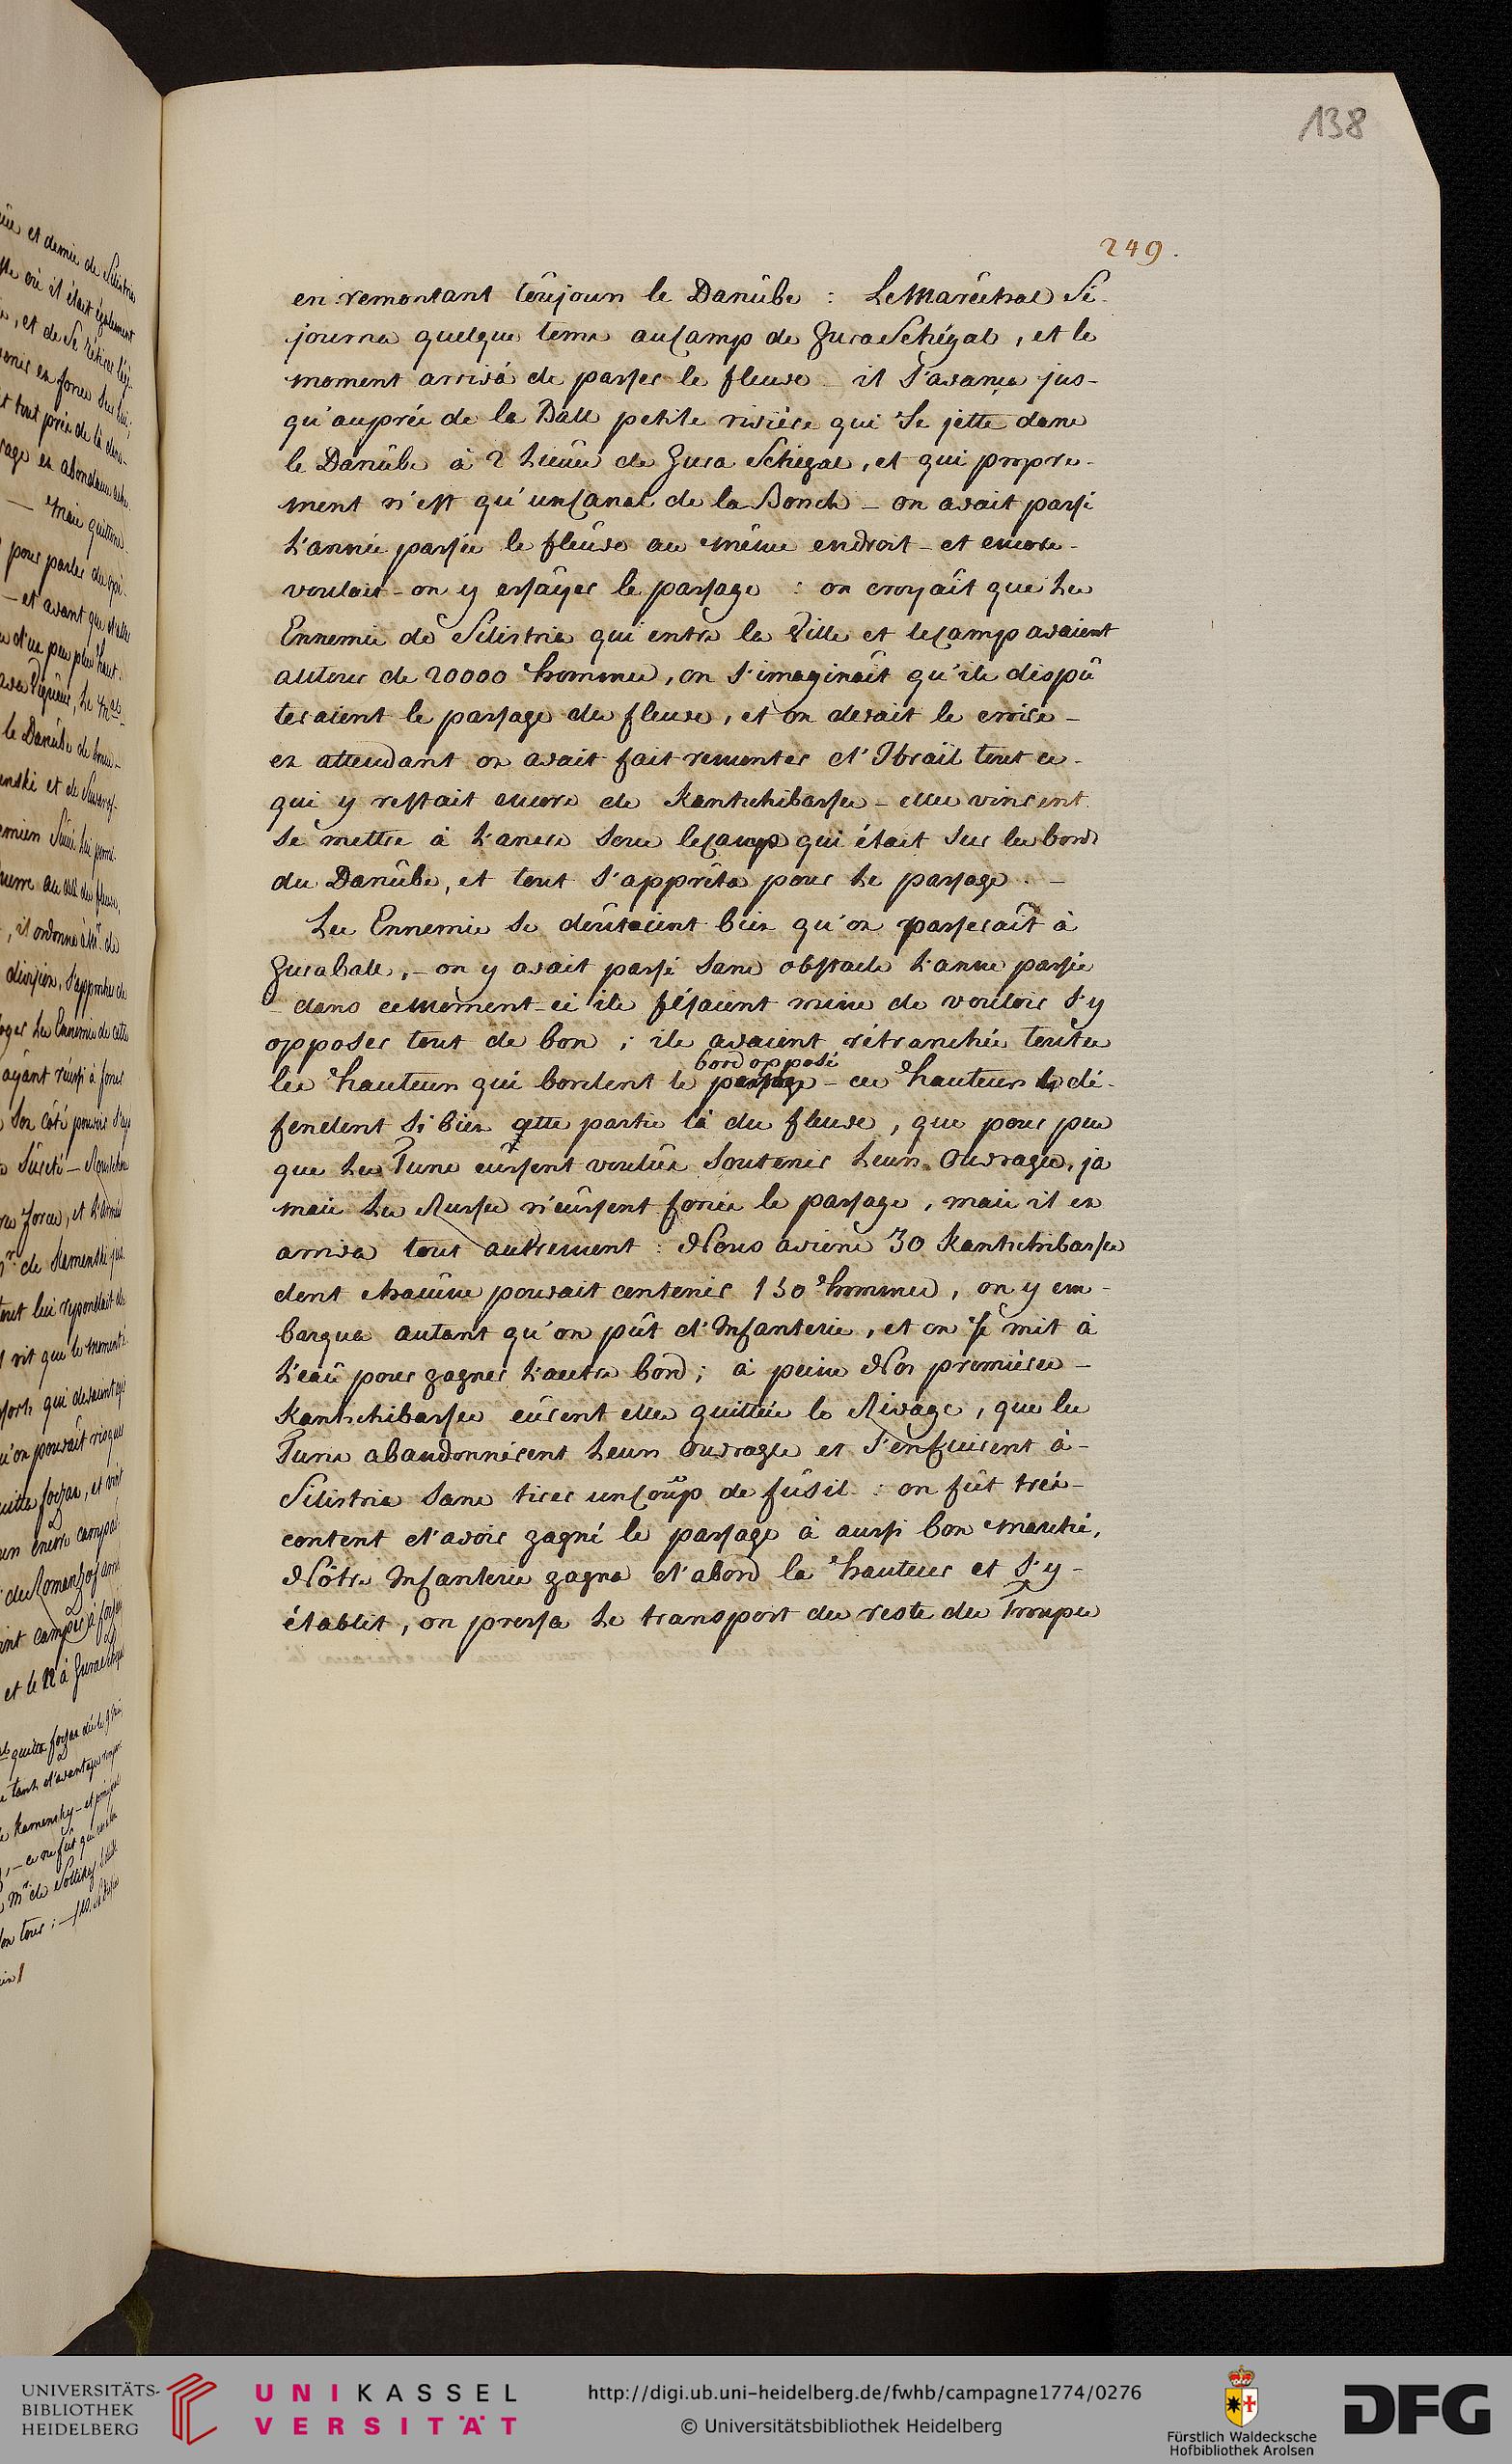 138
249.
en remontant toûjours le Danûbe : Le Maréchal Sé-
journa quelque tems au Camp de Gura Schégal, et le
moment arriva de passer le fleuve – il S'avança jus-
qu'auprès de la Ball petite rivière qui Se jette dans
le Danûbe à 2 Lieües de Gura Schegal, et qui propre-
ment n'est qu'un Canal de la Borsch – on avait passé
L'année passée le fleûve au même endroit – et encore-
voulait-on y essâyer le passage : on croyait que Les
Ennemis de Silistria qui entre la Ville et le Camp avaient
autour de 20000 hommes, on S'imaginait qu'ils dispû
teraient le passage du fleuve, et on devait le croire –
en attendant on avait fait remonter d'Ibraïl tout ce-
qui y restait encore de Kantschibasses – elles vinrent
Se mettre à L'ancre Sous le Camp qui était Sur les bords
du Danûbe, et tout S'apprêta pour Le passage. –
Les Ennemis Se doûtaient bien qu'on passerait à
Gurabale, – on y avait passé Sans obstacle L'année passée
– dans ce moment-ci ils fésaient mine de vouloir S'y
opposer tout de bon ; ils avaient rétranchés toutes
bord opposé
les hauteurs qui bordent le passage – ces hauteurs dé-
fendent Si bien cette partie là du fleuve, que pour peu
que Les Turcs eussent voulûs Soutenir Leurs Ouvrages, ja
mais Les Russes n'eussent forcés le passage, mais il en
arriva tout autrement : Nous avions 30 Kantschibasses
dont chacûne pouvait contenir 150 hommes, on y em-
barqua autant qu'on pût d'Infanterie, et on Se mit à
L'eaû pour gagner L'autre bord ; à peine Nos premières –
Kantschibasses eûrent elles quittées le Rivage, que les
Turcs abandonnérent Leurs Ouvrages et S'enfuirent à-
Silistria Sans tirer un Coûp de fûsil : on fût très-
content d'avoir gagné le passage à aussi bon marché,
Nôtre Infanterie gagna d'abord la hauteur et S'y-
établit, on pressa Le transport du reste des Troupes
UNIVERSITÄTS-
BIBLIOTHEK
HEIDELBERG
UNIKASSEL
VERSITÄT
http://digi.ub.uni-heidelberg.de/fwhb/campagne1774/0276
© Universitätsbibliothek Heidelberg
Fürstlich Waldecksche
Hofbibliothek Arolsen
DFG